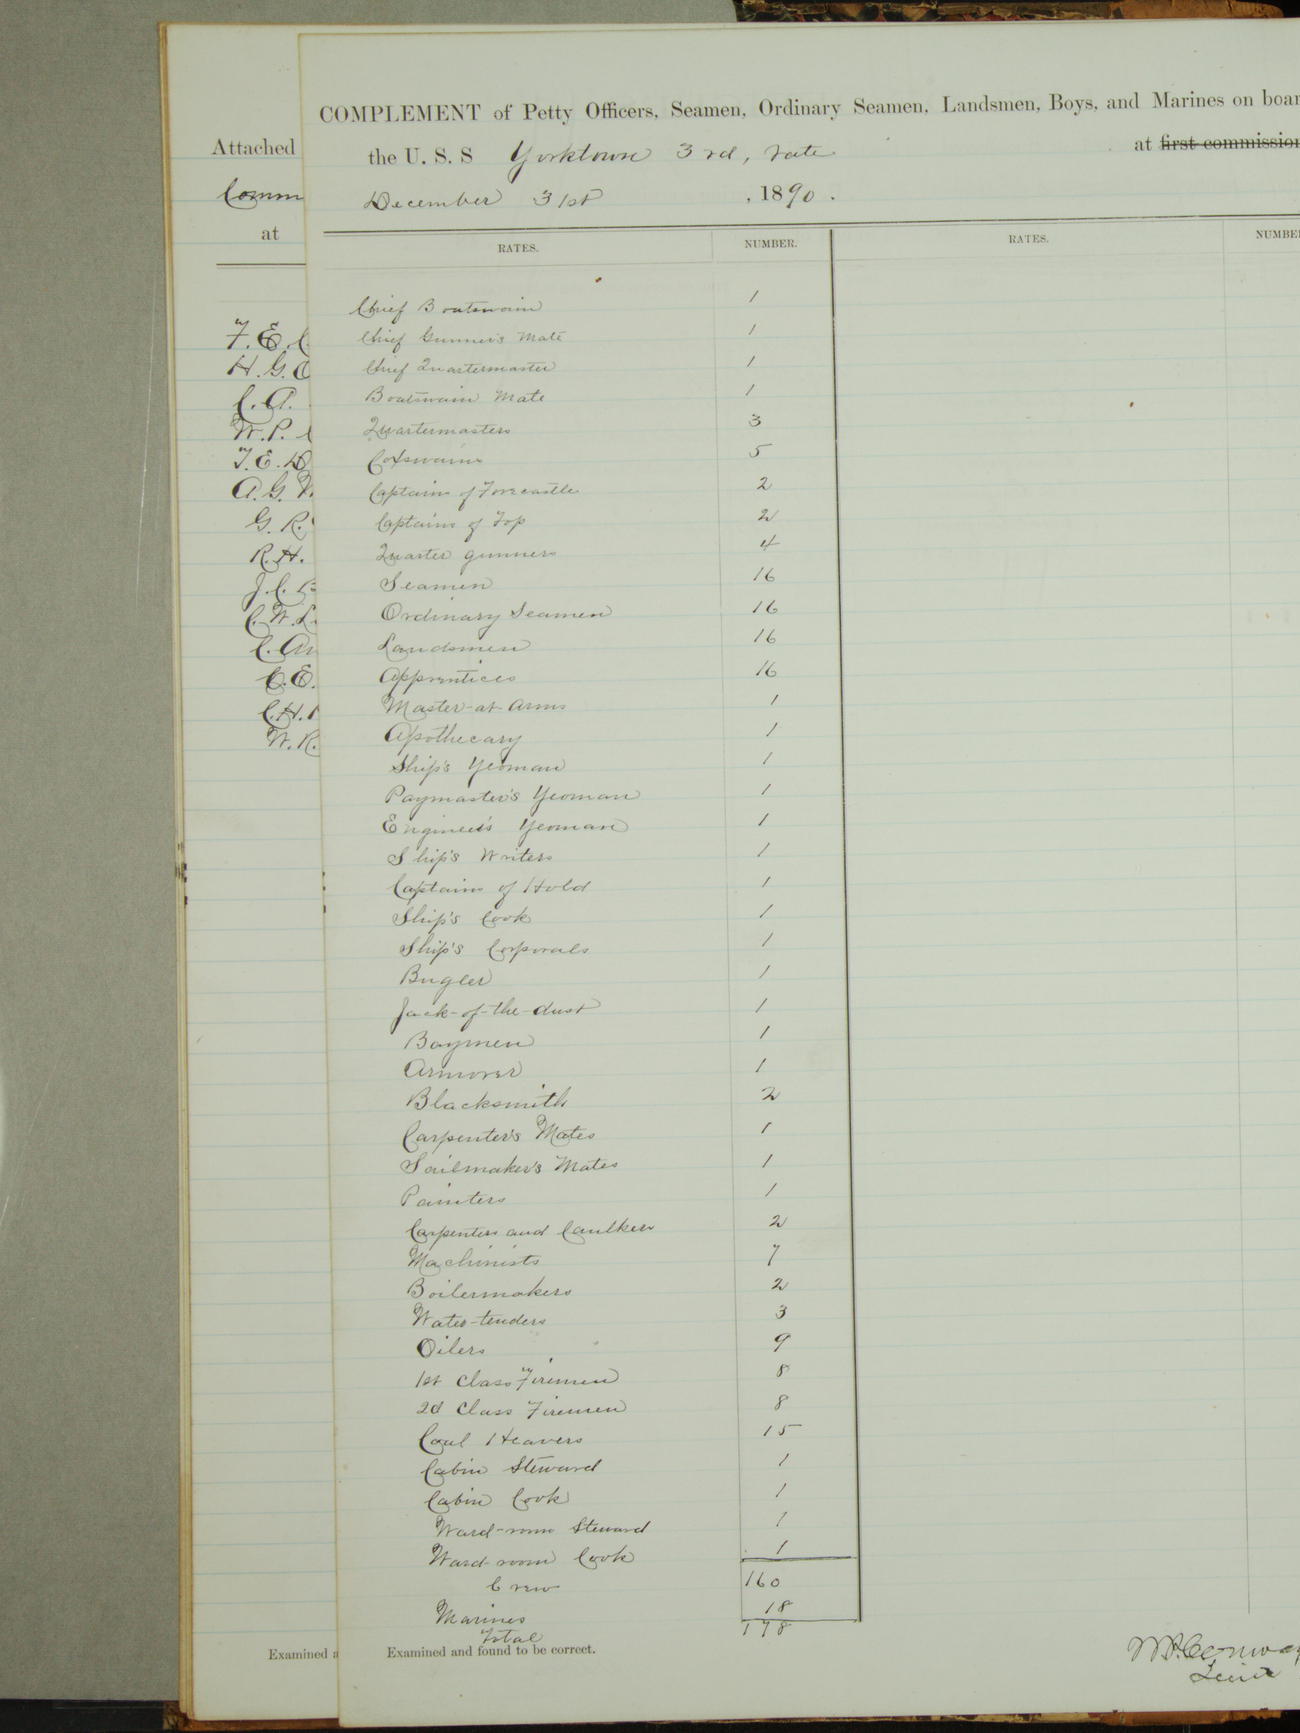 COMPLEMENT of Petty Officers, Seamen, Ordinary Seamen, Landsmen, Boys, and Marines on boar
the U. S. S Yorktown 3rd, rate at first commission
December 31st , 1890.
RATES. NUMBER. RATES. NUMBE
Chief Boatswain 1
Chief Gunner's Mate 1
Chief Quartermaster 1
Boatswain Mate 1
Quartermasters 3
Coxswains 5
Captains of Forecastle 2
Captains of Top 2
Quarter gunners 4
Seamen 16
Ordinary Seamen 16
Landsmen 16
Apprentices 16
Master-at-arms 1
Apothecary 1
Ship's Yeoman 1
Paymaster's Yeoman 1
Engineer's Yeoman 1
Ship's Writers 1
Captains of Hold 1
Ship's Cook 1
Ship's Corporals 1
Bugler 1
Jack-of-the-dust 1
Baymen 1
Armorer 1
Blacksmith 2
Carpenter's Mates 1
Sailmaker's Mates 1
Painters 1
Carpenters and Caulkers 2
Machinists 7
Boilermakers 2
Water-tenders 3
Oilers 9
1st Class Firemen 8
2d Class Firemen 8
Coal Heavers 15
Cabin Steward 1
Cabin Cook 1
Ward-room Steward 1
Ward-room Cook 1
Crew 160
Marines 18
Total 178
Examined and found to be correct.
Lieut
Attached
Comm
at
F. E. C
H. G. O
C. A.
W. P.
T. E. D
A. G.
G. R.
R. H.
J. C. B
C. W. L
C. An
C. E.
C. H.
W. R.
Examined a